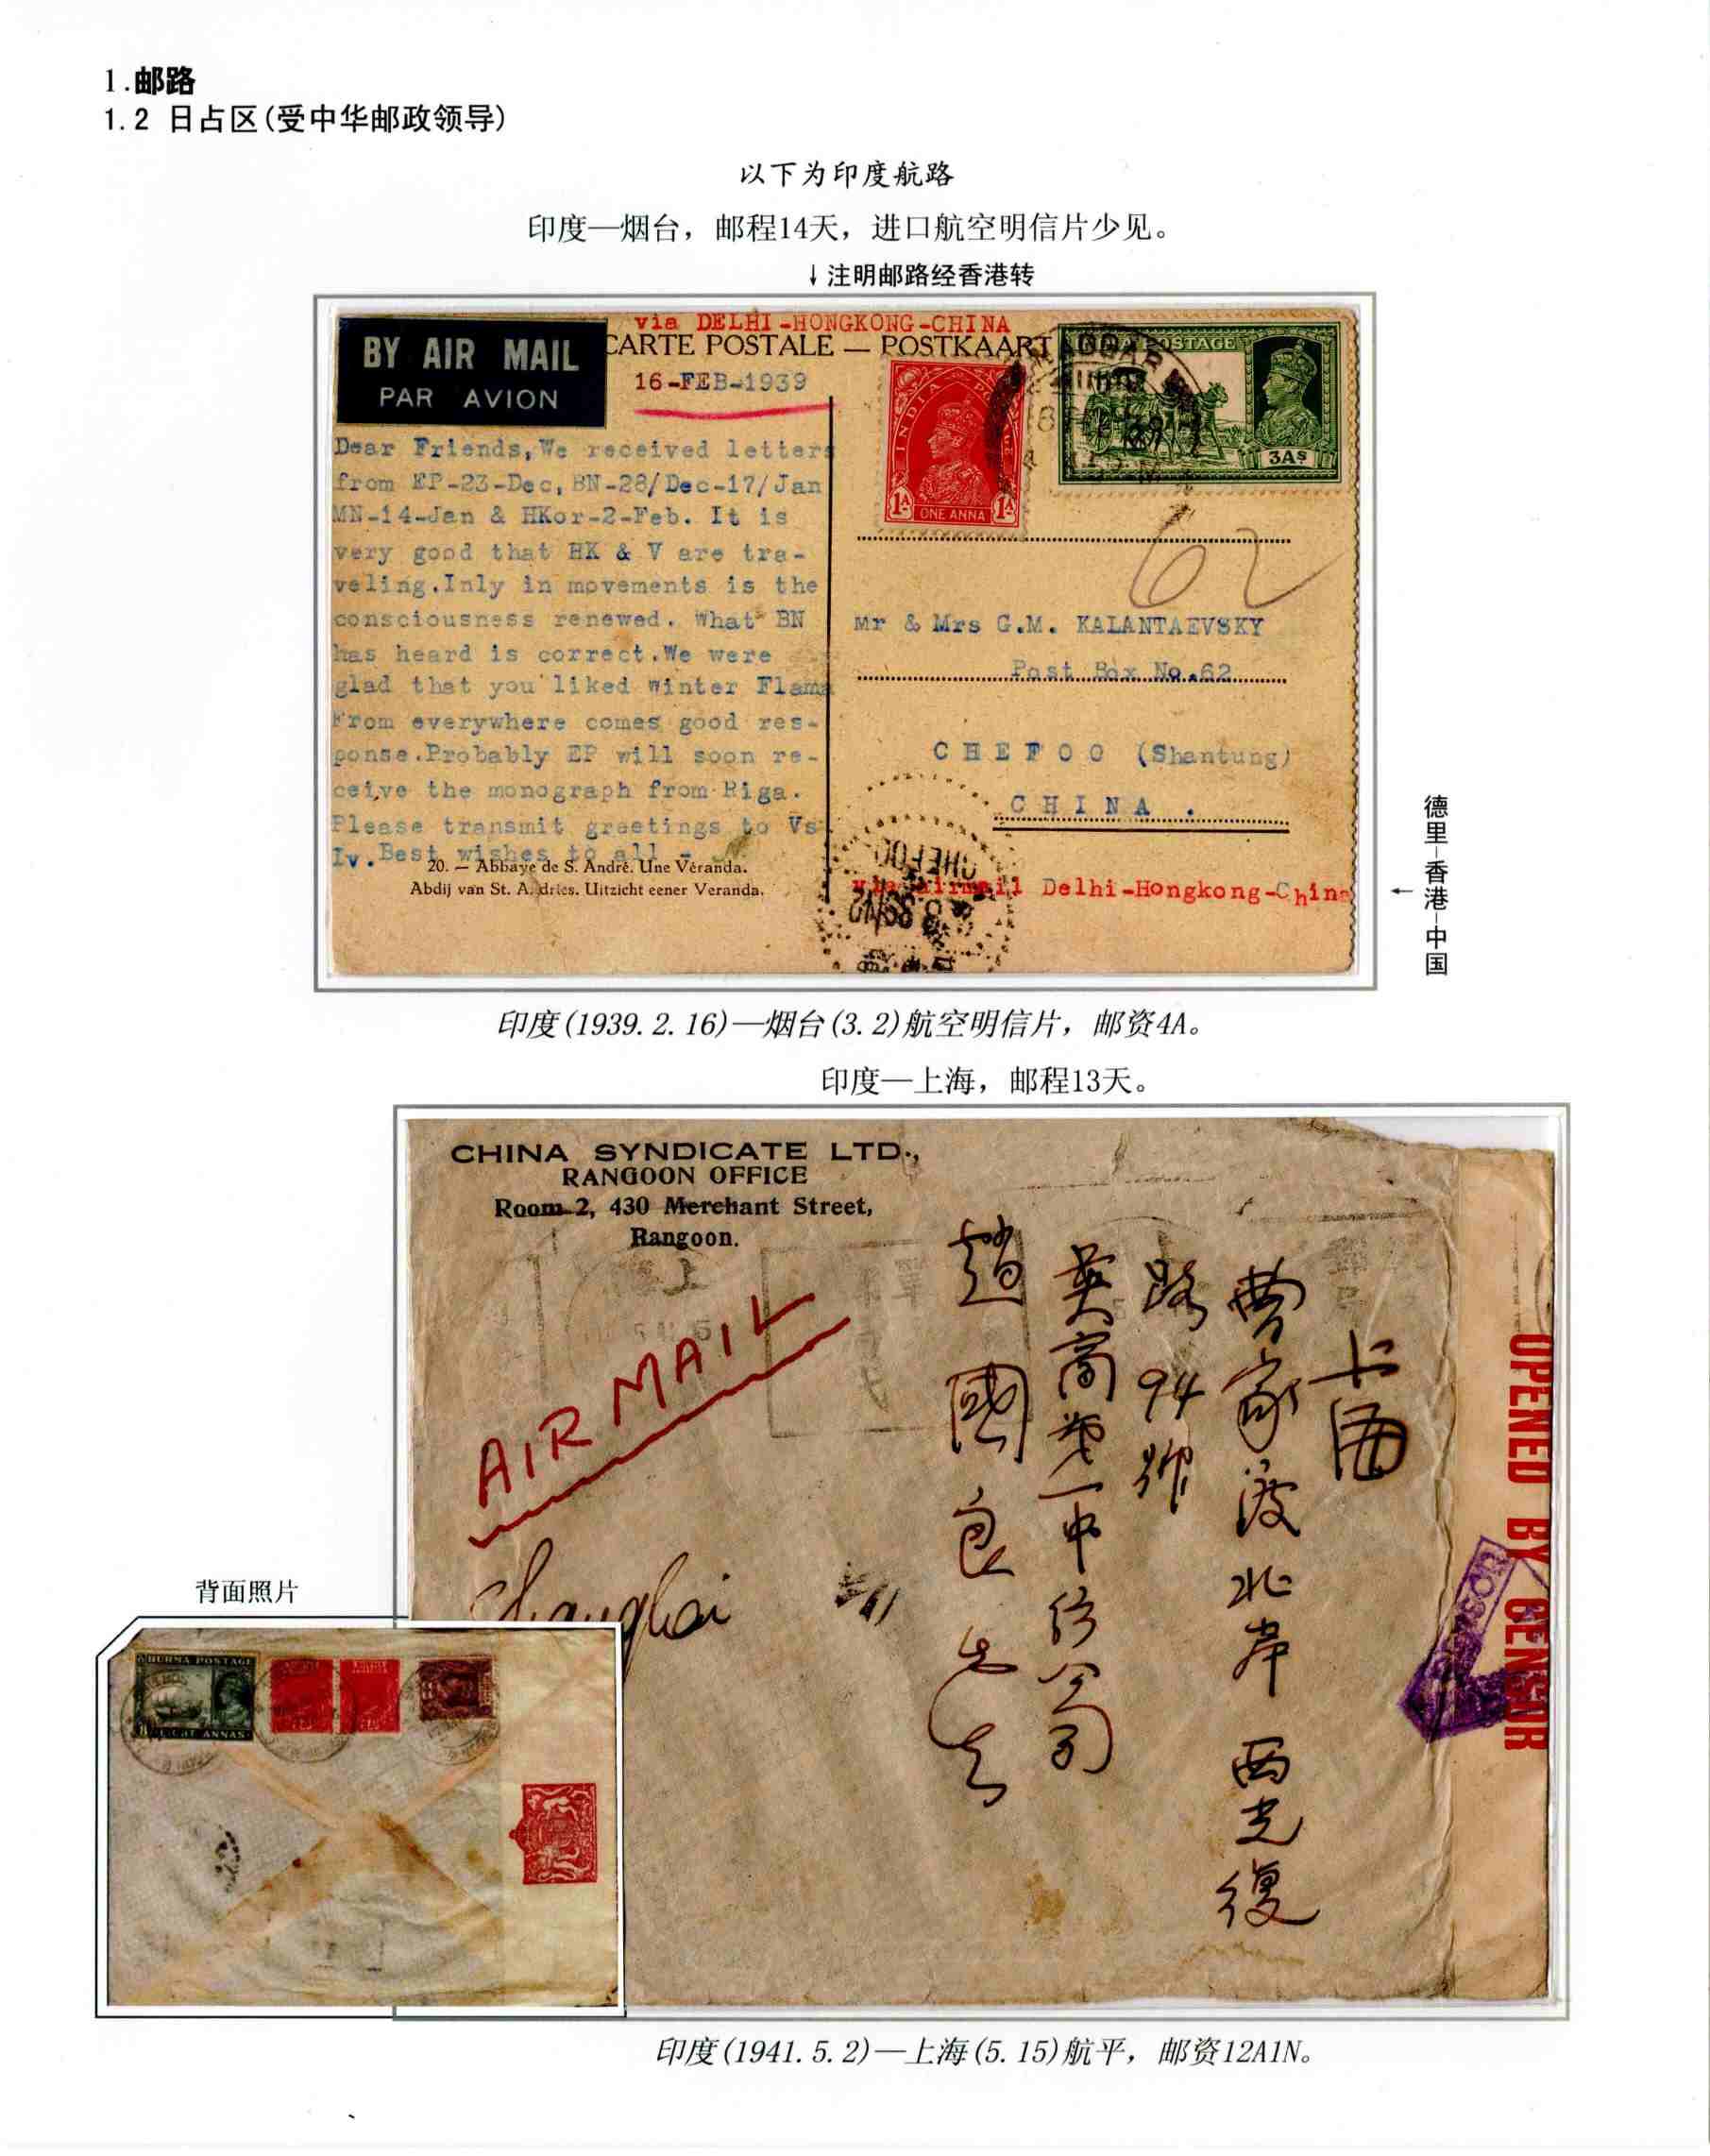 1.邮路
1.2 日占区(受中华邮政领导)
以下为印度航路
印度—烟台，邮程14天，进口航空明信片少见。
↓注明邮路经香港转
BY AIR MAIL
PAR AVION
via DELHI-HONGKONG-CHINA
CARTE POSTALE — POSTKAART
16-FEB-1939
INDIA POSTAGE
1A ONE ANNA 1A
3As
Dear Friends,We received letters
from EP-23-Dec, BN-28/Dec-17/Jan
MN-14-Jan & HKor-2-Feb. It is
very good that HK & V are tra-
veling.Inly in movements is the
consciousness renewed. What BN
has heard is correct.We were
glad that you liked winter Flame
From everywhere comes good res-
ponse.Probably EP will soon re-
ceive the monograph from Riga.
Please transmit greetings to Vs
Iv.Best wishes to all -
20. — Abbaye de S. André. Une Véranda.
Abdij van St. Andries. Uitzicht eener Veranda.
62
Mr & Mrs G.M. KALANTAEVSKY
Post Box No.62
CHEFOO (Shantung)
CHINA.
CHEFOO
via airmail Delhi-Hongkong-China
←德里-香港-中国
印度(1939.2.16)—烟台(3.2)航空明信片，邮资4A。
印度—上海，邮程13天。
CHINA SYNDICATE LTD.,
RANGOON OFFICE
Room 2, 430 Merchant Street,
Rangoon.
AIR MAIL
Shanghai
上海
曹家渡北岸西光復
路94號
英商第一中紡公司
趙國良先生
OPENED BY CENSOR
背面照片
BURMA POSTAGE
EIGHT ANNAS
印度(1941.5.2)—上海(5.15)航平，邮资12A1N。